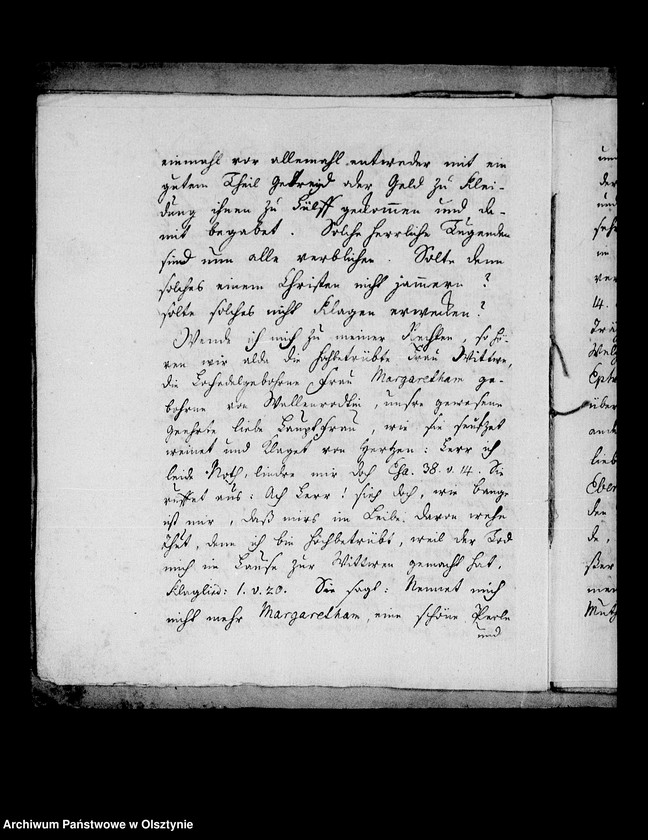 einmahl vor allemahl entweder mit ein
gutem Theil Getreyd oder Geld zu Klei-
dung ihnen zu Hülff gekom̄en und da-
mit begabet. Solche herrliche Tugenden
sind nun alle verblichen. Solte denn
solches einem Christen nicht jam̄ern?
solte solches nicht Klagen erwecken?
Wende ich mich zu meiner Rechten, so hö-
ren wir alda die Hochbetrübte Frau Wittwe,
die Hochedelgebohrne Frau Margaretham ge-
bohrne von Wallenrodtin, unsre gewesene
geehrte liebe Hauptfrau, wie sie seufzet
weinet und Klaget von Hertzen: Herr ich
leide Noth, lindre mir doch Esa. 38. v. 14. Sie
ruffet aus: Ach Herr! sieh doch, wie bange
ist mir, daß mirs im Leibe davon wehe
thut, denn ich bin hochbetrübt, weil der Tod
mich im Hause zur Wittwen gemacht hat.
Klaglied: 1. v. 20. Sie sagt: Nennet mich
nicht mehr Margaretham, eine schöne Perle
und
14.
über
lieb
Eber
den
de,
Archiwum Państwowe w Olsztynie